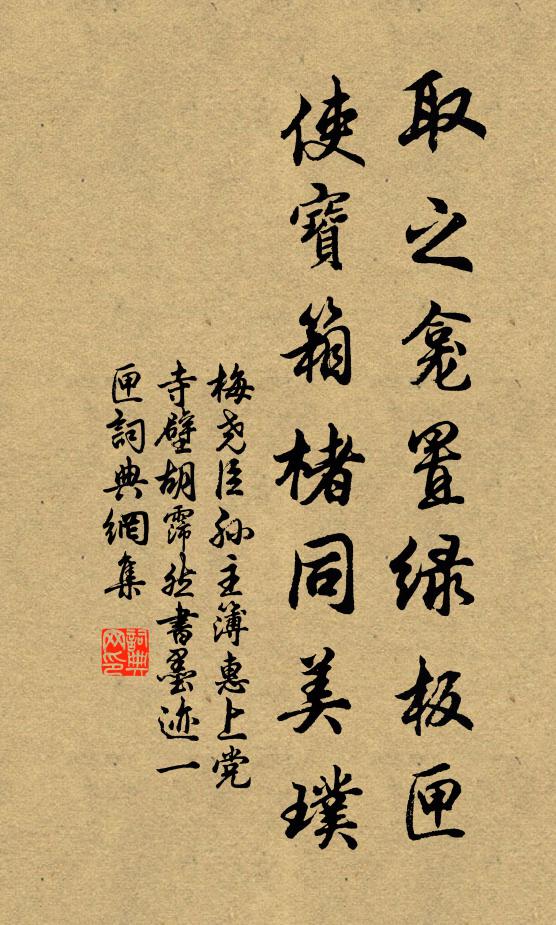 取之龛置绿板匣
使寶箱楮同美璞
梅尧臣孙主簿惠上党
寺壁胡霈然書墨迹一
匣詞典網集
詞典网印